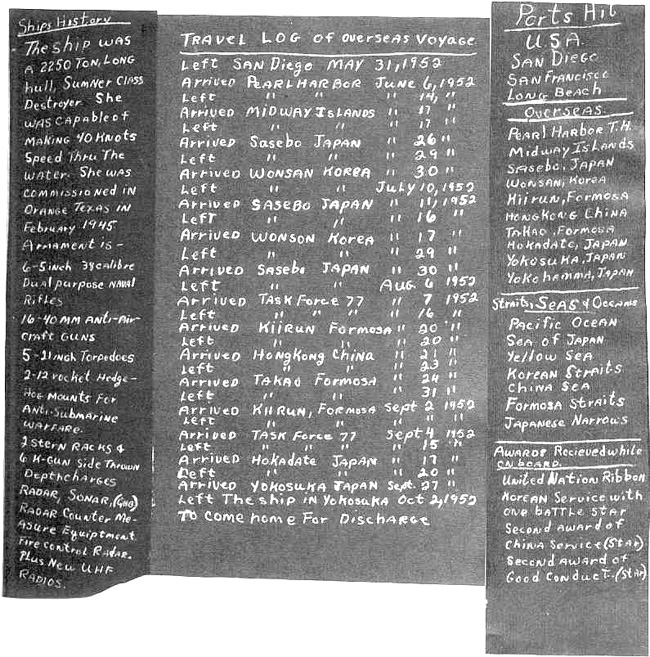 Ships History
The ship was
a 2250 Ton, Long
hull, Sumner Class
Destroyer. She
was capable of
making 40 knots
speed Thru The
water. She was
commissioned in
Orange Texas in
February 1945
Armament is -
6-5 inch 38 calibre
Dual purpose naval
Rifles
16-40 MM Anti-Air-
craft Guns
5-21 inch Torpedoes
2-12 rocket Hedge-
Hog Mounts For
Anti-Submarine
Warfare.
2 Stern Racks &
6 K-Gun Side Thrown
Depthcharges
RADAR, SONAR,
RADAR Counter Me-
asure Equiptment
Fire control Radar.
Plus New UHF
RADIOS.
Travel Log of overseas Voyage
Left San Diego May 31, 1952
Arrived Pearl Harbor June 6, 1952
Left " " " 14, "
Arrived Midway Islands " 17 "
Left " " " 17 "
Arrived Sasebo Japan " 26 "
Left " " " 29 "
Arrived Wonsan Korea " 30 "
Left " " July 10, 1952
Arrived Sasebo Japan " 11, 1952
Left " " " 16 "
Arrived Wonson Korea " 17 "
Left " " " 29 "
Arrived Sasebo Japan " 30 "
Left " " Aug. 6 1952
Arrived Task Force 77 " 7 1952
Left " " " " 16 "
Arrived Kiirun Formosa " 20 "
Left " " " 20 "
Arrived HongKong China " 21 "
Left " " " 23 "
Arrived Takao Formosa " 24 "
Left " " " 31 "
Arrived Kiirun, Formosa Sept 2 1952
Left " " " "
Arrived Task Force 77 Sept 4 1952
Left " " " 15 "
Arrived Hokadate Japan " 17 "
Left " " " 20 "
Arrived Yokosuka Japan Sept. 27 "
Left The ship in Yokosuka Oct 2, 1952
To Come home For Discharge
Ports Hit
U.S.A.
San Diego
San Francisco
Long Beach
Overseas
Pearl Harbor T.H.
Midway Islands
Sasebo, Japan
Wonsan, Korea
Kiirun, Formosa
HongKong China
Takao, Formosa
Hokadate, Japan
Yokosuka, Japan
Yokohamma, Japan
Straits, Seas & Oceans
Pacific Ocean
Sea of Japan
Yellow Sea
Korean Straits
China Sea
Formosa Straits
Japanese Narrows
Awards Recieved while
on board.
United Nation Ribbon
Korean Service with
one battle star
Second award of
China Service (Star)
Second award of
Good Conduct. (Star)